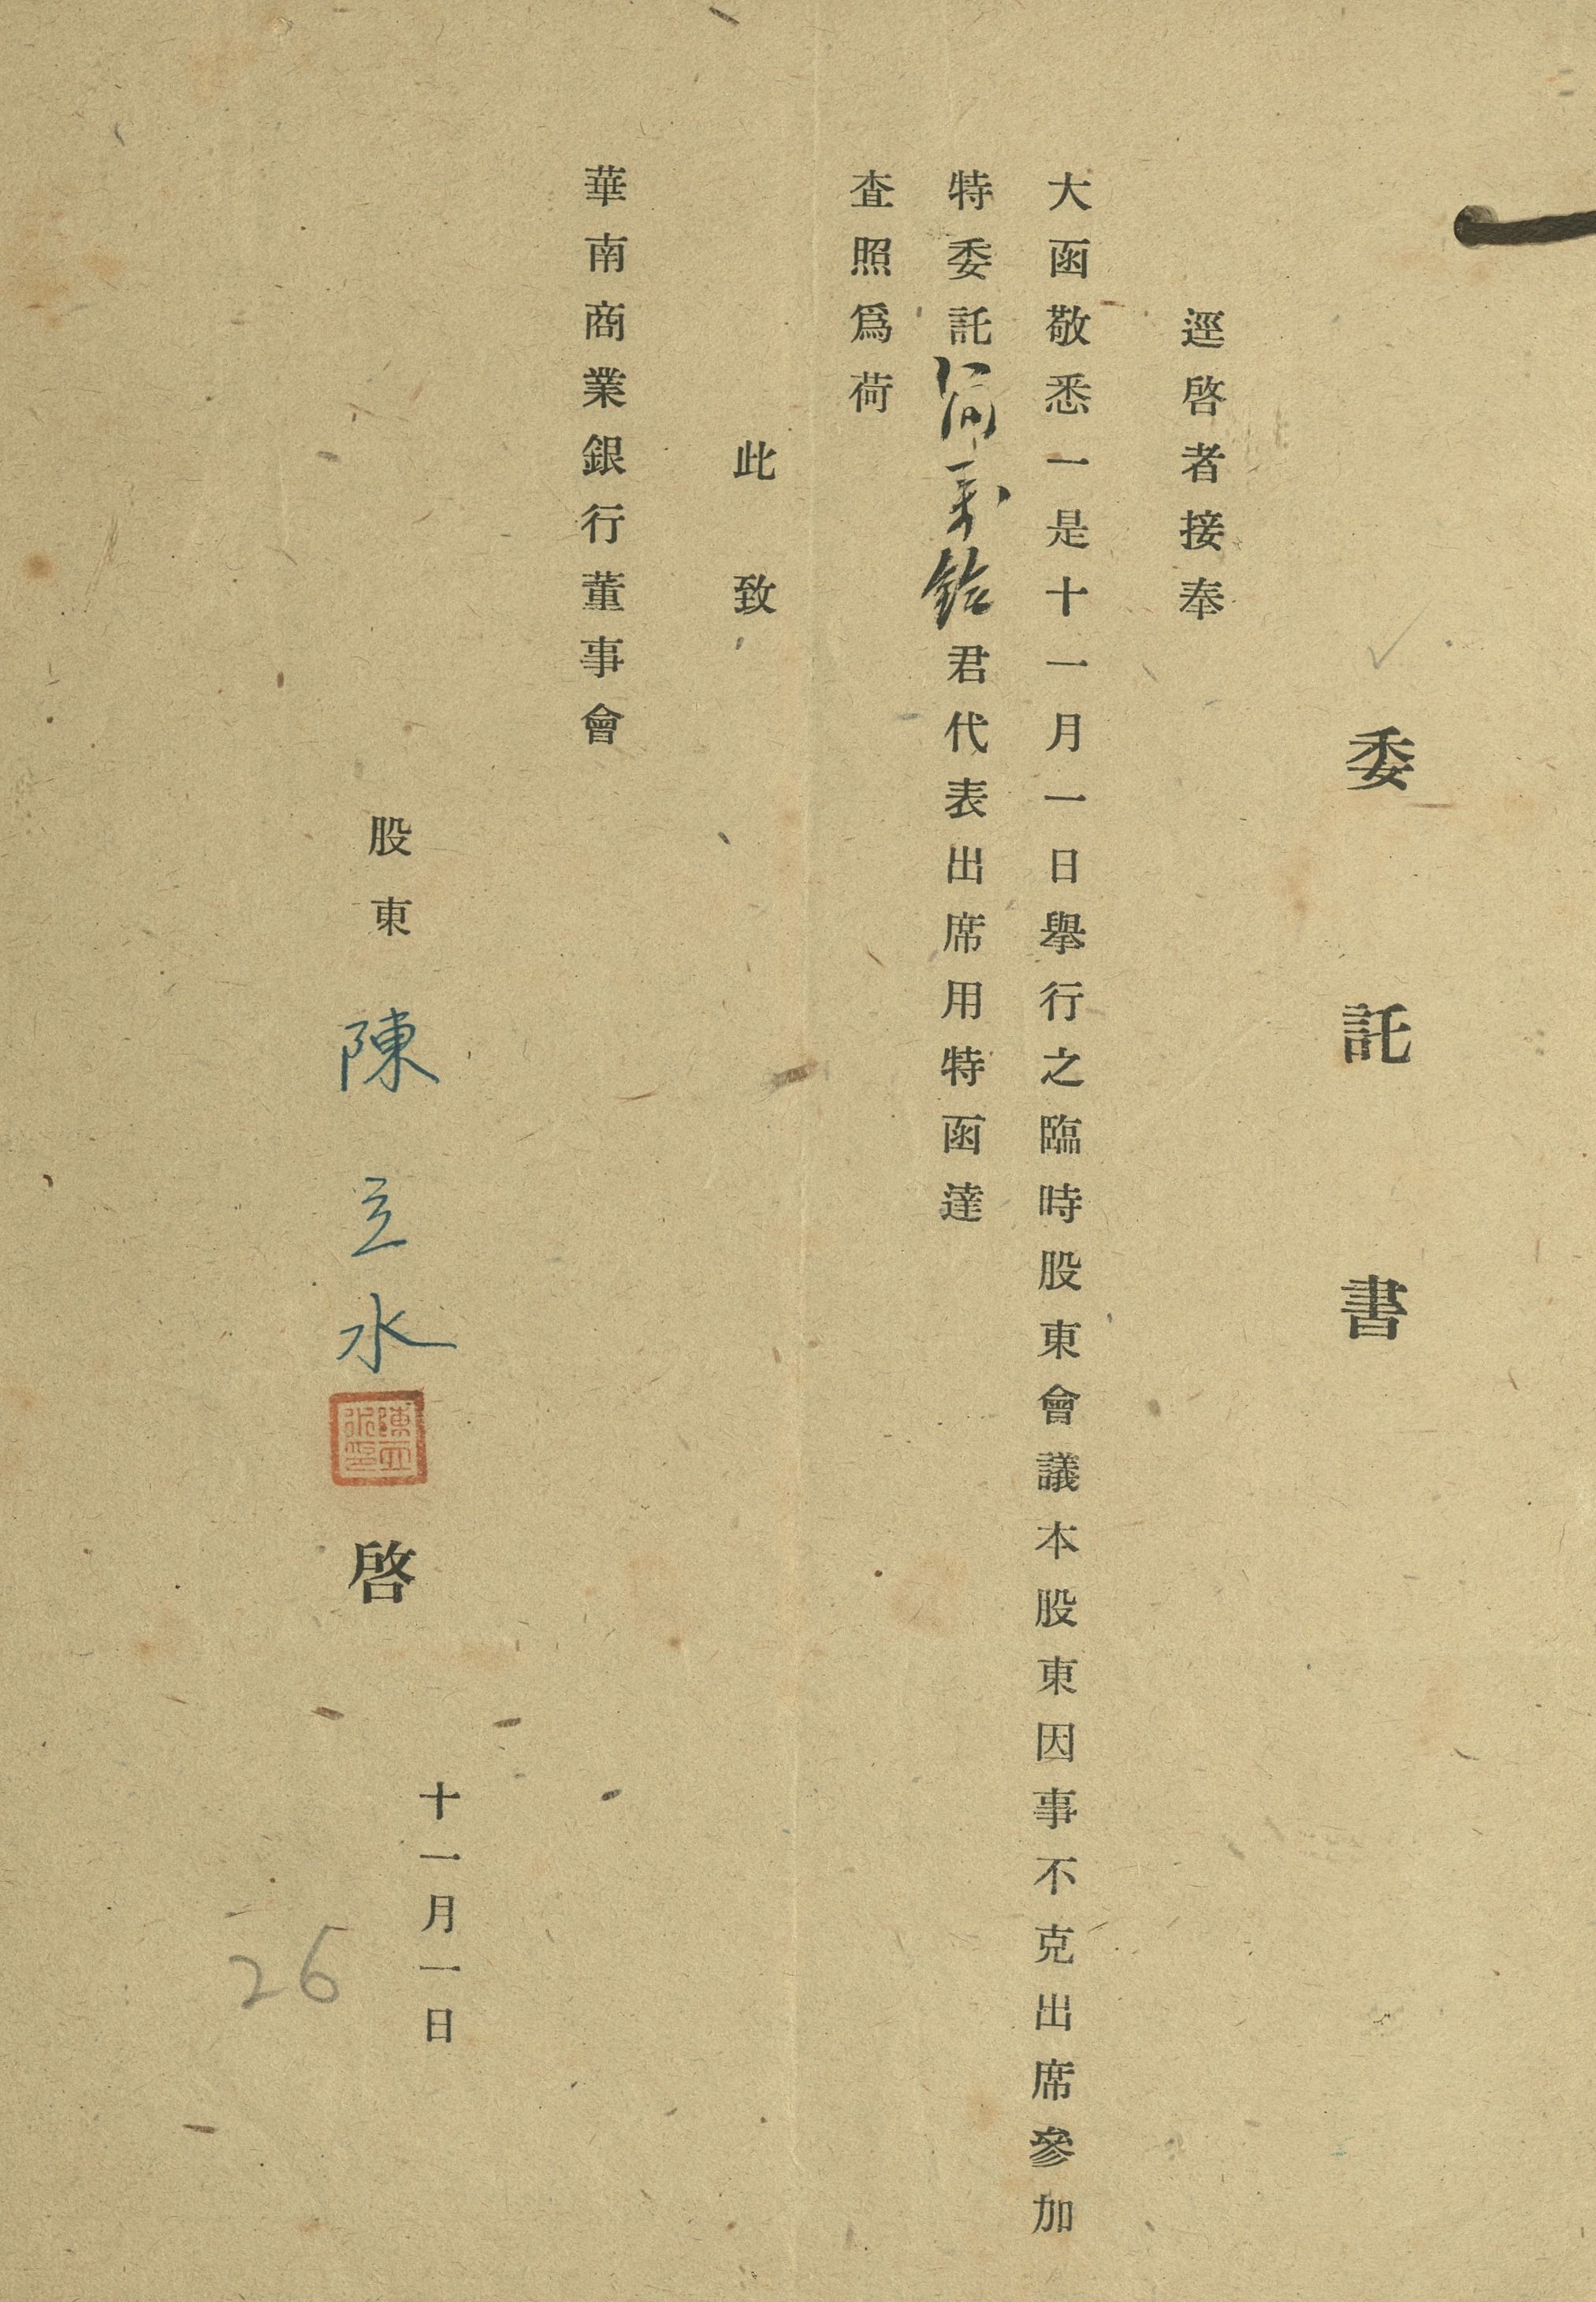 委託書
逕啓者接奉
大函敬悉一是十一月一日舉行之臨時股東會議本股東因事不克出席參加
特委託簡 鉿君代表出席用特函達
査照爲荷
此致
華南商業銀行董事會
股東 陳立水 啓
陳立水印
十一月一日
26